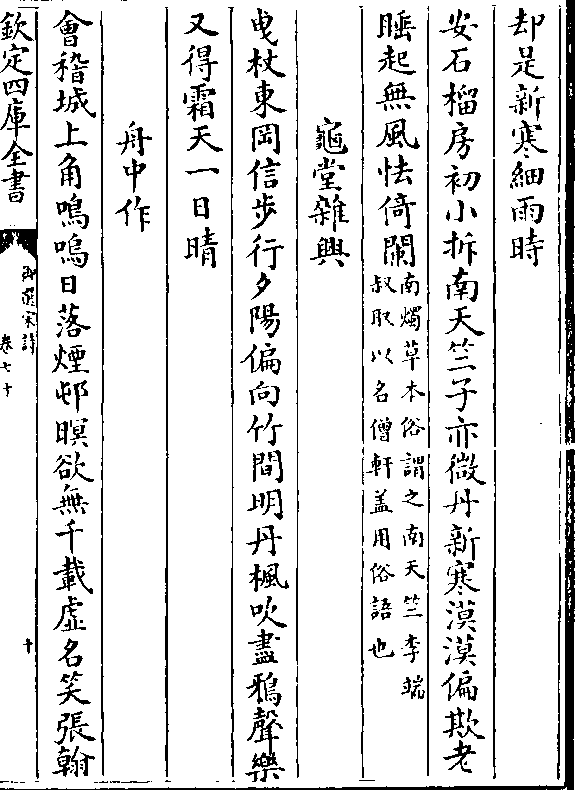 却是新寒細雨時
安石榴房初小拆南天竺子亦微丹新寒漠漠偏欺老
睡起無風怯倚闌
南燭草木俗謂之南天竺李端
叔取以名僧軒盖用俗語也
龜堂雜興
曵杖東岡信步行夕陽偏向竹間明丹楓吹盡鴉聲樂
又得霜天一日晴
舟中作
會稽城上角嗚嗚日落煙邨暝欲無千載虛名笑張翰
欽定四庫全書
御選宋詩
卷七十
十